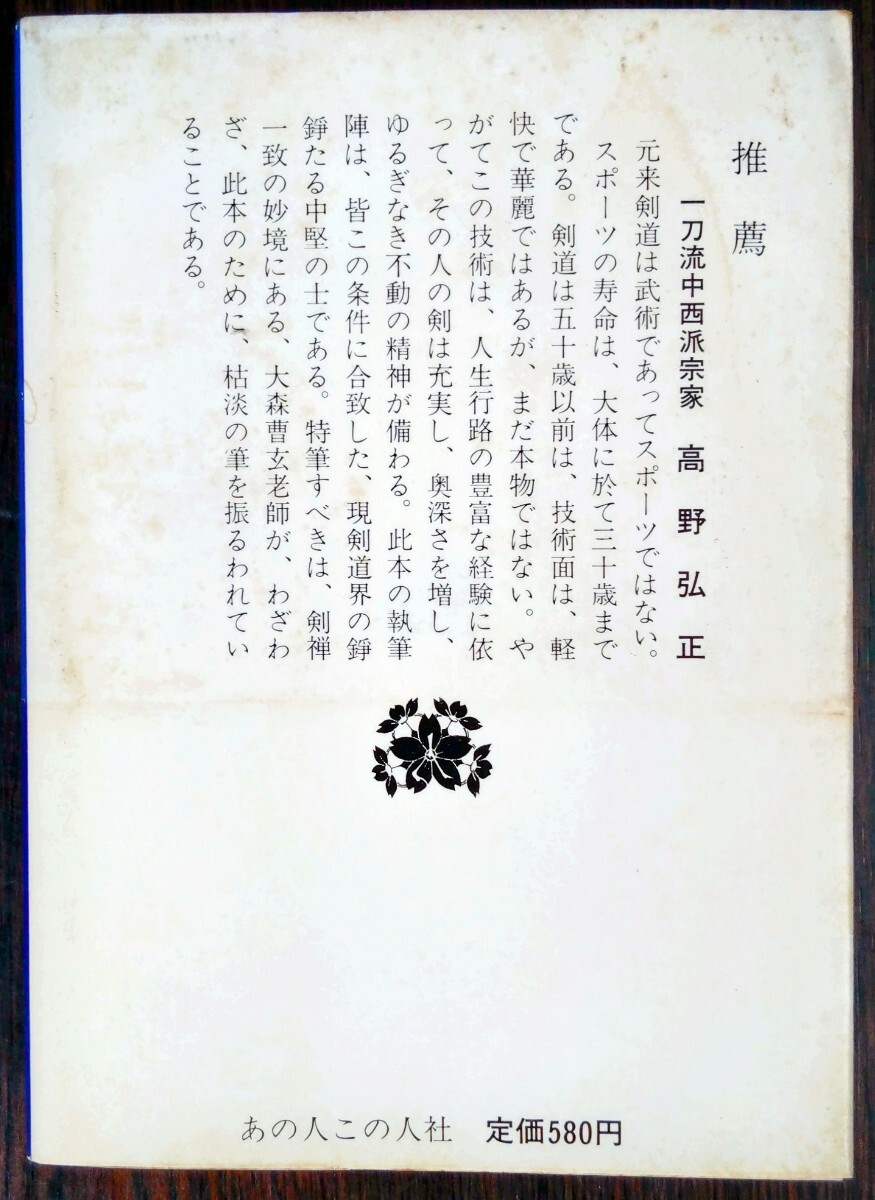 推薦
一刀流中西派宗家 高野弘正
元来剣道は武術であってスポーツではない。
スポーツの寿命は、大体に於て三十歳まで
である。剣道は五十歳以前は、技術面は、軽
快で華麗ではあるが、まだ本物ではない。や
がてこの技術は、人生行路の豊富な経験に依
って、その人の剣は充実し、奥深さを増し、
ゆるぎなき不動の精神が備わる。此本の執筆
陣は、皆この条件に合致した、現剣道界の錚
錚たる中堅の士である。特筆すべきは、剣禅
一致の妙境にある、大森曹玄老師が、わざわ
ざ、此本のために、枯淡の筆を振るわれてい
ることである。
あの人この人社 定価580円